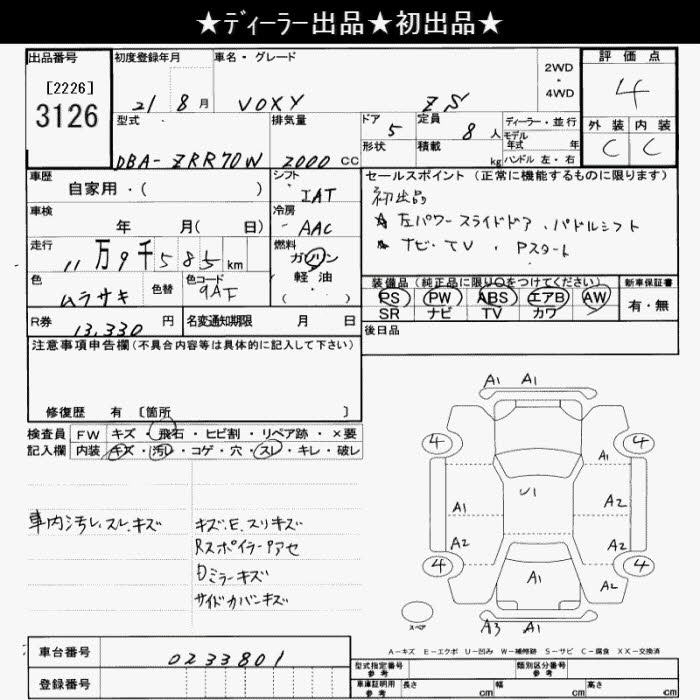 ★ディーラー出品★初出品★
出品番号
[2226]
3126
初度登録年月
21 8 月
車名・グレード
VOXY ZS
2WD
・
4WD
評価点
4
外装 内装
C C
型式
DBA-ZRR70W
排気量
2000 CC
ドア
5
形状
定員
8 人
積載
kg
ディーラー・並行
モデル年式 年
ハンドル 左・右
車歴
自家用・( )
シフト
IAT
車検
年 月( 日)
冷房
AAC
走行
11万9千585km
燃料
ガソリン
軽油
( ・ )
色
ムラサキ
色替
色コード
9AF
R券
13,330 円
名変通知期限 月 日
セールスポイント (正常に機能するものに限ります)
初出品
★ 左パワースライドドア、パドルシフト
★ ナビ・TV 、Pスタート
装備品(純正品に限り○をつけてください)
PS PW ABS エアB AW
SR ナビ TV カワ
新車保証書
有・無
後日品
注意事項申告欄(不具合内容等は具体的に記入して下さい)
修復歴 有 〔箇所 〕
検査員記入欄
FW キズ・飛石・ヒビ割・リペア跡・×要
内装 キズ・汚レ・コゲ・穴・スレ・キレ・破レ
車内汚レ、スレ、キズ
キズ、E、スリキズ
Rスポイラーアアセ
Dミラーキズ
サイドカバンキズ
A1 A1
4 4
A1
A1 U1 A2
A2 A2
4 A1 4
A2
スペア
A3 A1
A-キズ E-エクボ U-凹み W-補修跡 S-サビ C-腐食 XX-交換済
車台番号
0233801
登録番号
型式指定番号
参考
類別区分番号
参考
車庫証明用
参考
長さ cm 幅 cm 高さ cm